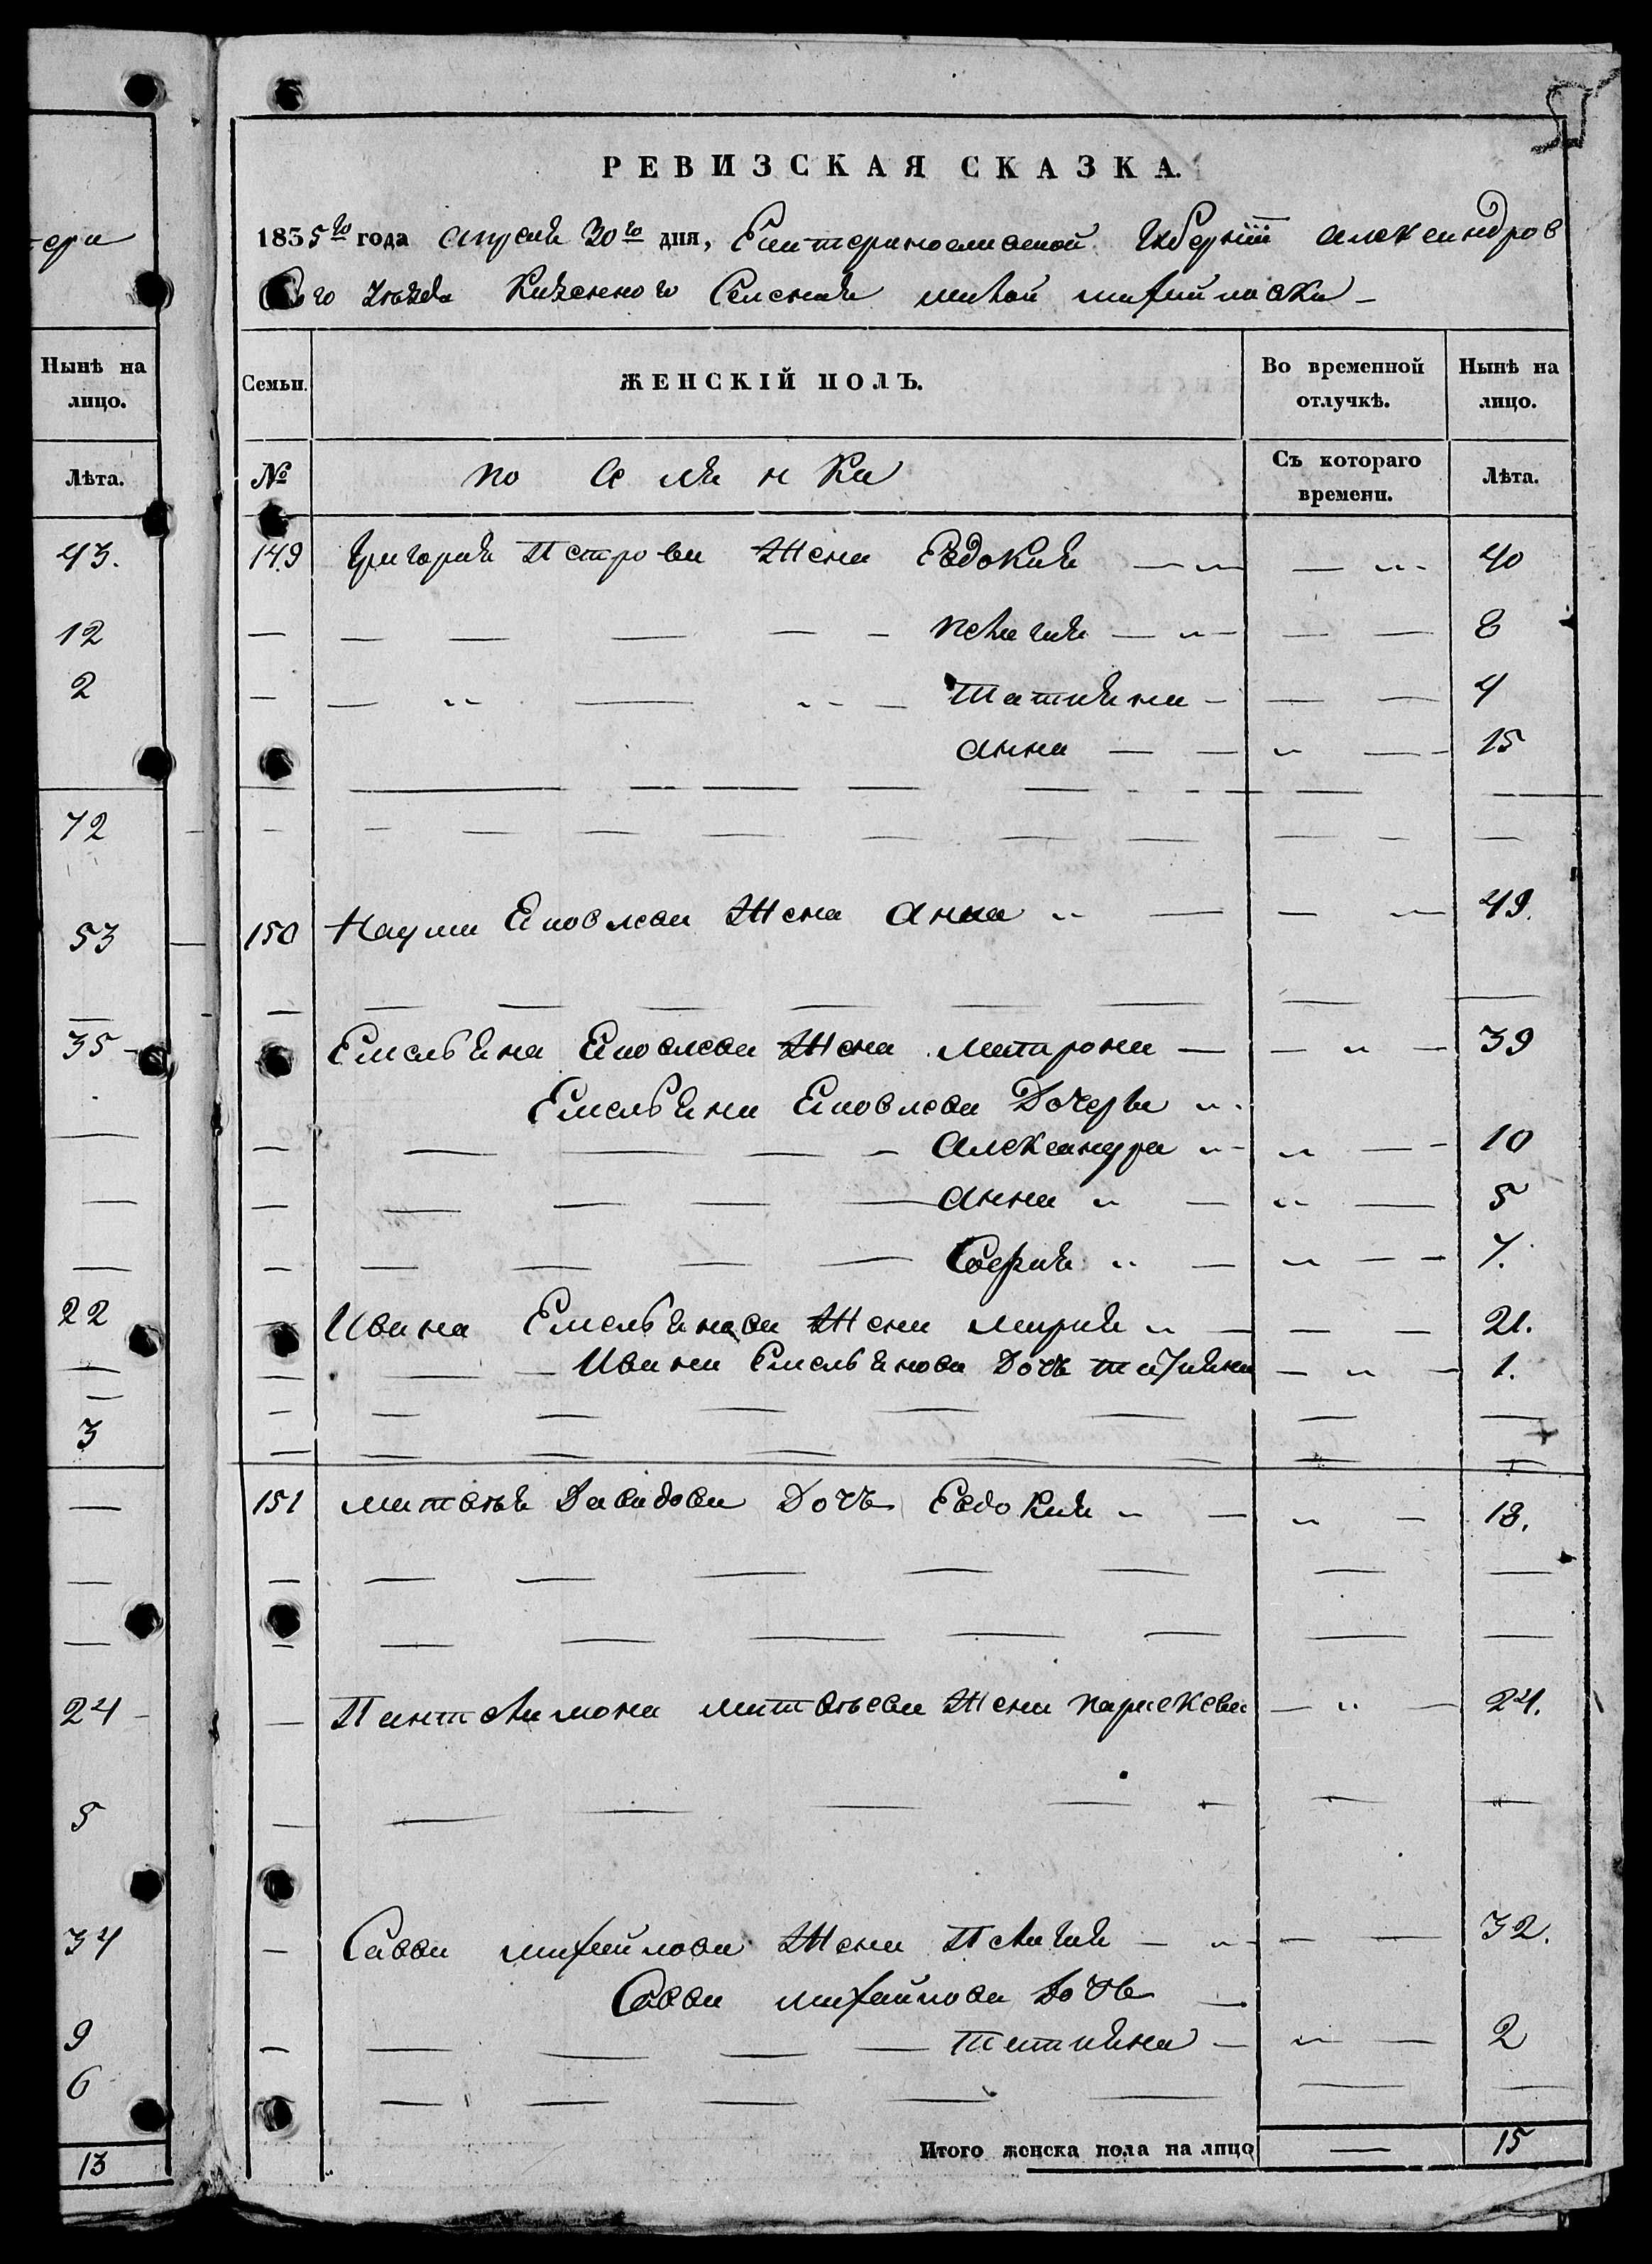 РЕВИЗСКАЯ СКАЗКА.
1835го года апреля 30го дня, Екатеринославской губернiи Александров
го уезда казенного Селения малой михайловки
Нынѣ на лицо.
Лѣта.
43.
12
2
72
53
35
22
3
24
5
34
9
6
13
Семьи. ЖЕНСКIЙ ПОЛЪ. Во временной отлучкѣ. Нынѣ на лицо.
№ Съ котораго времени. Лѣта.
149 Григория Петрова Жена Евдокия 40
Пелагия 8
Татияна 4
Анна 15
150 Наума Яковлева Жена Анна 49.
Емельяна Яковлева Жена Матрона 39
Емельяна Яковлева Дочери
Александра 10
Анна 5
София 7.
Ивана Емельянова Жена Мария 21.
Ивана Емельянова Дочь татияна 1.
151 Матвѣя Давидова Дочь Евдокия 18.
Пантелимона Матвѣева Жена Параскева 24.
Савви Михайлова Жена Пелагия 32.
Савви Михайлова Дочь
Татияна 2
Итого женска пола на лицо — 15